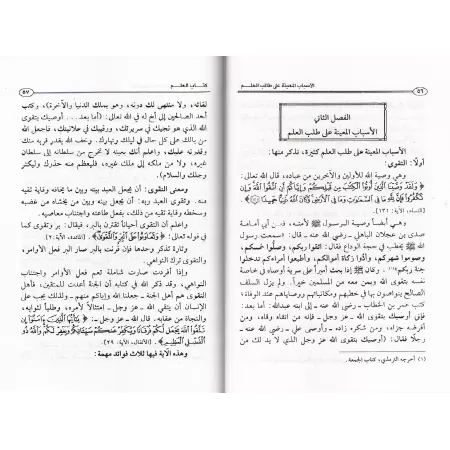 الأسباب المعينة على طلب العلم
٥٦
الفصل الثاني
الأسباب المعينة على طلب العلم
الأسباب المعينة على طلب العلم كثيرة، نذكر منها:
أولاً: التقوى:
وهي وصية الله للأولين والآخرين من عباده، قال الله تعالى:
﴿ وَلَقَدْ وَصَّيْنَا الَّذِينَ أُوتُوا الْكِتَابَ مِن قَبْلِكُمْ وَإِيَّاكُمْ أَنِ اتَّقُوا اللَّهَ وَإِن
تَكْفُرُوا فَإِنَّ لِلَّهِ مَا فِي السَّمَاوَاتِ وَمَا فِي الْأَرْضِ وَكَانَ اللَّهُ غَنِيًّا حَمِيدًا ﴾
[النساء، الآية: ١٣١].
وهي أيضاً وصية الرسول ﷺ لأمته، فعن أبي أمامة
صدي بن عجلان الباهلي - رضي الله عنه - قال: سمعت رسول
الله ﷺ يخطب في حجة الوداع فقال: اتقوا ربكم، وصلوا خمسكم،
وصوموا شهركم، وأدوا زكاة أموالكم، وأطيعوا أمراءكم تدخلوا
جنة ربكم(١) وكان ﷺ إذا بعث أميراً على سرية أوصاه في خاصة
نفسه بتقوى الله وبمن معه من المسلمين خيراً. ولم يزل السلف
الصالح يتواصون بها في خطبهم ومكاتباتهم ووصاياهم عند الوفاة؛
كتب عمر بن الخطاب - رضي الله عنه - إلى ابنه عبدالله: أما
بعد... فإني أوصيك بتقوى الله - عز وجل - فإنه من اتقاه وقاه، ومن
أقرضه جزاه، ومن شكره زاده - وأوصى علي - رضي الله عنه -
رجلاً فقال: (أوصيك بتقوى الله - عز وجل - الذي لا بد لك من
(١) أخرجه الترمذي، كتاب الجمعة.
كتاب العلم
٥٧
لقائه، ولا منتهى لك دونه، وهو يملك الدنيا والآخرة)، وكتب
أحد الصالحين إلى أخ له في الله تعالى: (أما بعد... أوصيك بتقوى
الله الذي هو نجيك في سريرتك، ورقيبك في علانيتك، فاجعل الله
من بالك على كل حالك في ليلك ونهارك. وخف الله بقدر قربه منك
وقدرته عليك، واعلم أنك بعينه لا تخرج من سلطانه إلى سلطان
غيره، ولا من ملكه إلى ملك غيره، فليعظم منه حذرك وليكثر
وجلك والسلام).
ومعنى التقوى: أن يجعل العبد بينه وبين ما يخافه وقاية تقيه
منه. وتقوى العبد ربه: أن يجعل بينه وبين من يخشاه من غضبه
وسخطه وقاية تقيه من ذلك، بفعل طاعته واجتناب معاصيه.
واعلم أن التقوى أحياناً تقترن بالبر، فيقال: بر وتقوى كما
في قوله تعالى: ﴿ وَتَعَاوَنُوا عَلَى الْبِرِّ وَالتَّقْوَى ﴾ [المائدة، الآية: ٢].
وتارة تذكر وحدها فإن قرنت بالبر صار البر فعل الأوامر،
والتقوى ترك النواهي.
وإذا أفردت صارت شاملة تعم فعل الأوامر واجتناب
النواهي، وقد ذكر الله في كتابه أن الجنة أعدت للمتقين، فأهل
التقوى هم أهل الجنة - جعلنا الله وإياكم منهم - ولذلك يجب على
الإنسان أن يتقي الله - عز وجل - امتثالاً لأمره، وطلباً لثوابه،
والنجاة من عقابه. قال الله - عز وجل -: ﴿ يَا أَيُّهَا الَّذِينَ آمَنُوا إِن
تَتَّقُوا اللَّهَ يَجْعَل لَّكُمْ فُرْقَانًا وَيُكَفِّرْ عَنكُمْ سَيِّئَاتِكُمْ وَيَغْفِرْ لَكُمْ وَاللَّهُ ذُو
الْفَضْلِ الْعَظِيمِ ﴾ [الأنفال، الآية: ٢٩].
وهذه الآية فيها ثلاث فوائد مهمة: